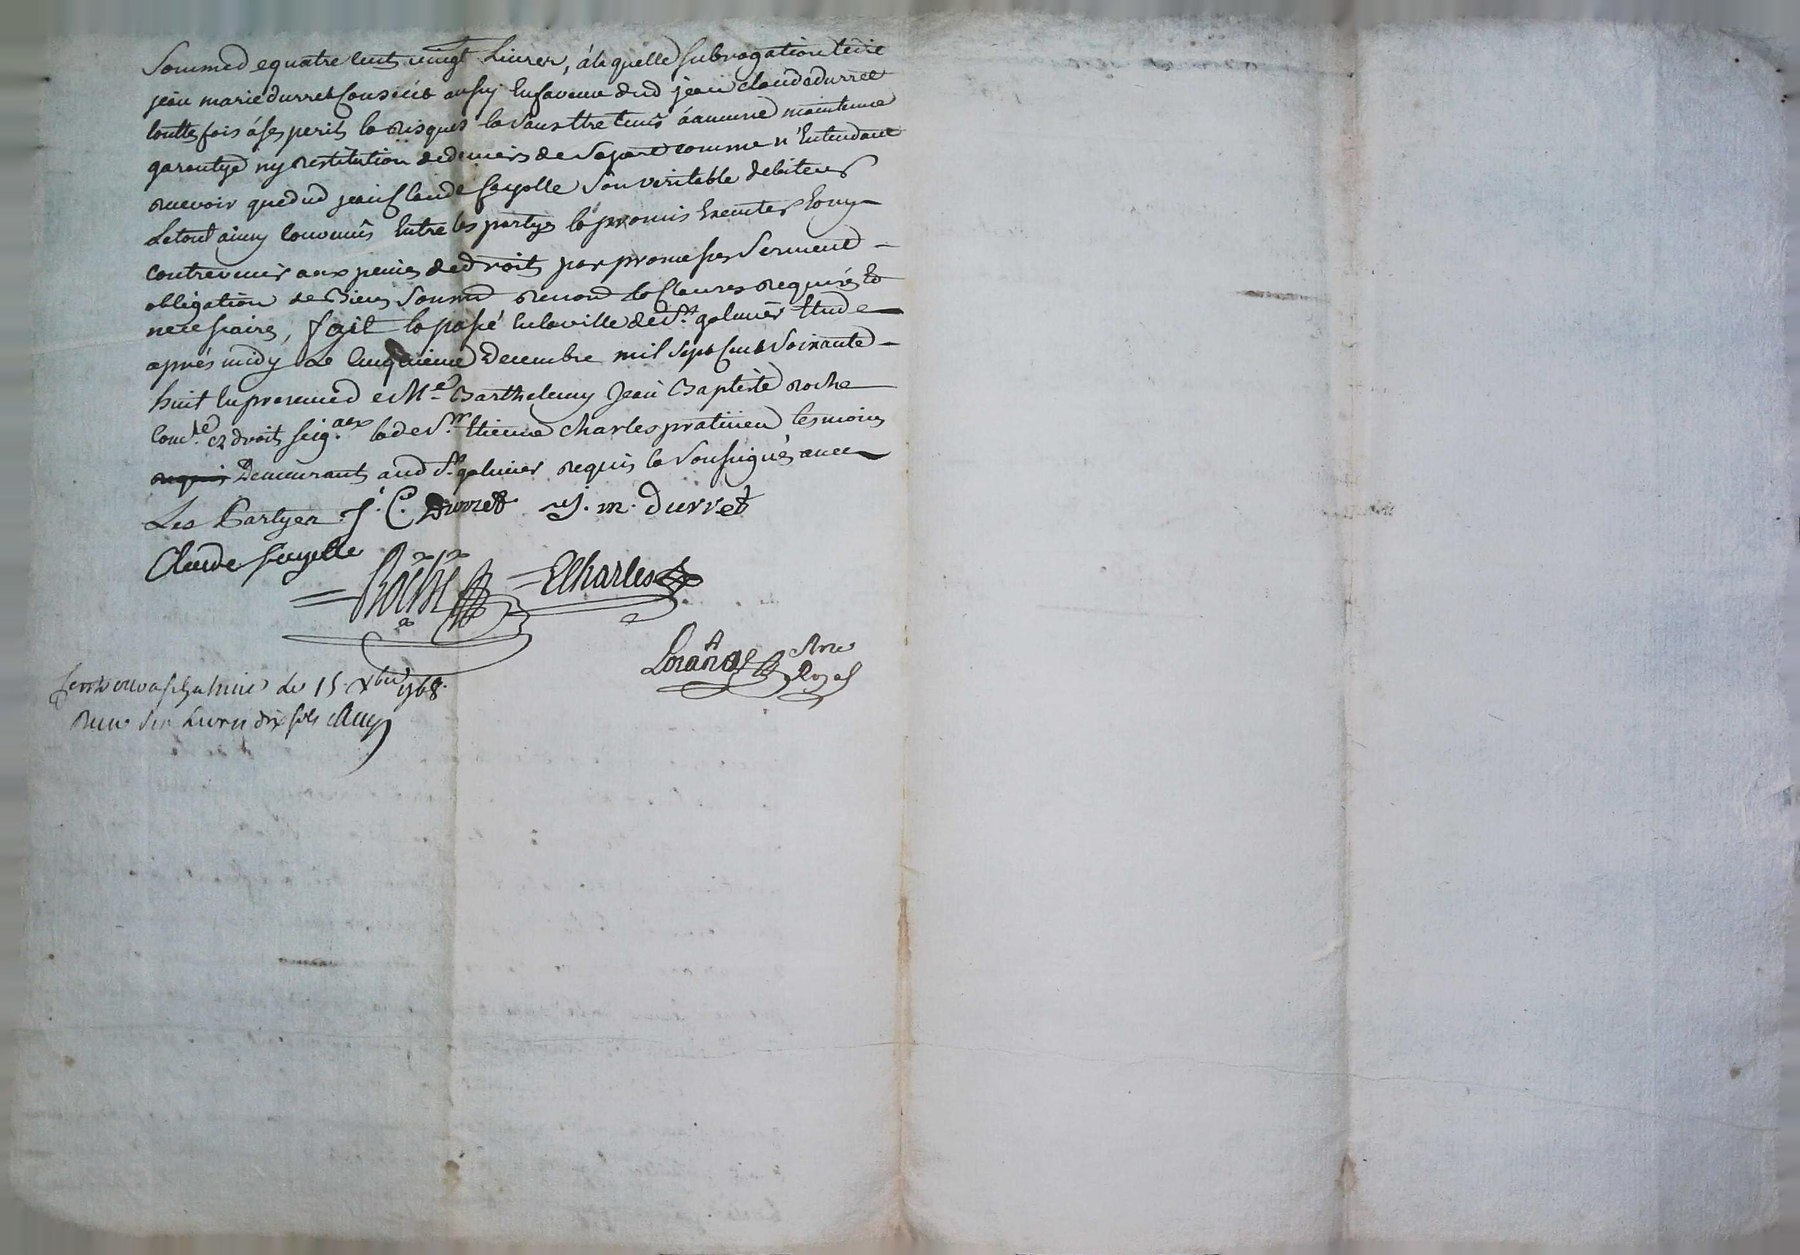 Somme de quatre cent vingt Livres, á la quelle subrogation ledit
jean marie durret Consent aussy En faveur dud jean claude durret
touttefois á ses perils Et risques Et sans Etre tenus á aucune maintenue
garantye ny restitution de deniers de Sa part comme n'Entendant
recevoir que dud jean Claude fayolle Son veritable debiteur
Le tout ainsy convenûs Entre les partyes Et promis Executer Et ny
contrevenir aux peines de droits par promesses Serment
obligation de Biens Soumis renond Et Clauses requises Et
necessaires, fait Et passé En la ville de St galmier Etude
aprés midy Le Cinquieme Decembre mil sept Cent Soixante
huit En presence de Me Barthelemy Jean Baptiste roche
droits Et de Sr Etienne charles praticien tesmoins
Demeurants aud St galmier requis Et Soussignés avec
Les Partyes J. C. Durret J. m. durret
Claude fayolle
Roche ECharles
Lorange Nre
Royal
St Galmier le 15. Xbre 1768.
Livres dix sols